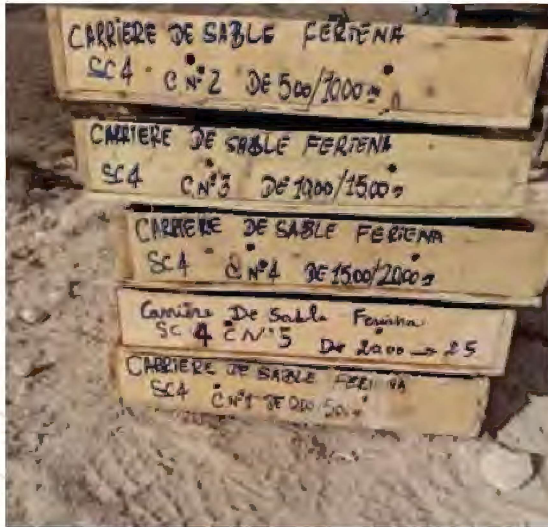 CARRIERE DE SABLE FERIENA
SC4 C N°2 DE 500/1000 m
CARRIERE DE SABLE FERIENA
SC4 C N°3 DE 1000/1500
CARRIERE DE SABLE FERIENA
SC4 C N°4 DE 1500/2000
Carrière De Sable Feriana
SC 4 C N°5 De 2000 → 25
CARRIERE DE SABLE
SC4 C N°1 DE